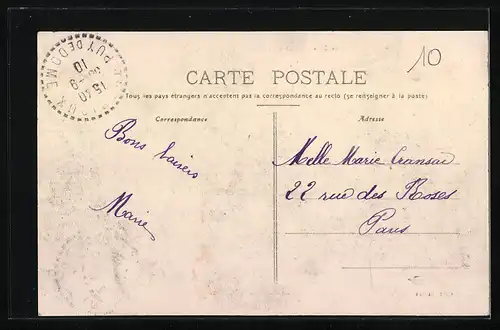 10
CARTE POSTALE
Tous les pays étrangers n'acceptent pas la correspondance au recto (se renseigner à la poste)
Correspondance
Adresse
Bons baisers
Marie
Melle Marie Cransac
22 rue des Roses
Paris
PUY DE DOME
15 40
9
10